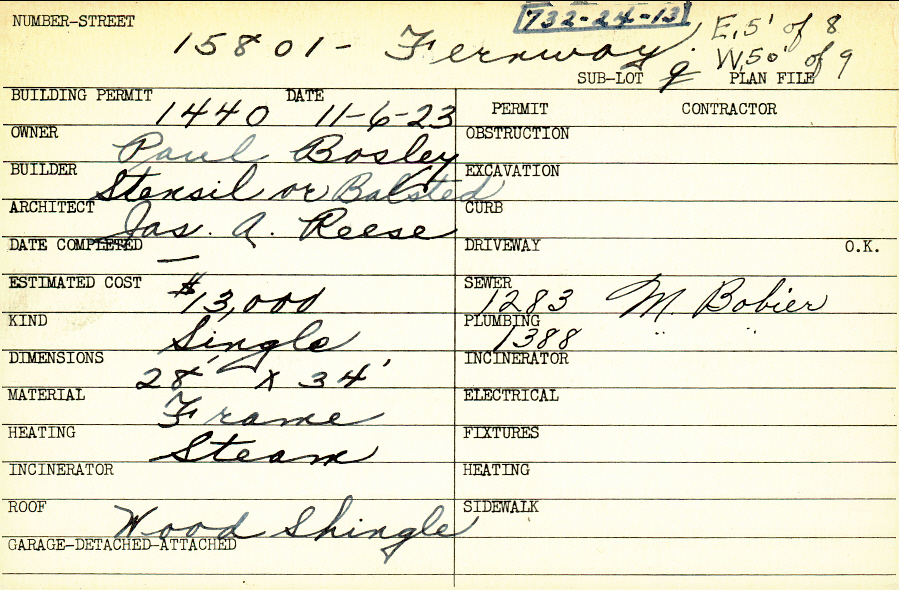 NUMBER-STREET 732-24-13
15801- Fernway. E, 5' of 8
W, 50' of 9
SUB-LOT 9 PLAN FILE
BUILDING PERMIT 1440 DATE 11-6-23
OWNER Paul Bosley
BUILDER Stensil or Balsted
ARCHITECT Jas. A. Reese
DATE COMPLETED —
ESTIMATED COST $13,000
KIND Single
DIMENSIONS 28' x 34'
MATERIAL Frame
HEATING Steam
INCINERATOR
ROOF Wood Shingle
GARAGE-DETACHED-ATTACHED
PERMIT CONTRACTOR
OBSTRUCTION
EXCAVATION
CURB
DRIVEWAY O.K.
SEWER 1283 M. Bobier
PLUMBING 1388 " "
INCINERATOR
ELECTRICAL
FIXTURES
HEATING
SIDEWALK